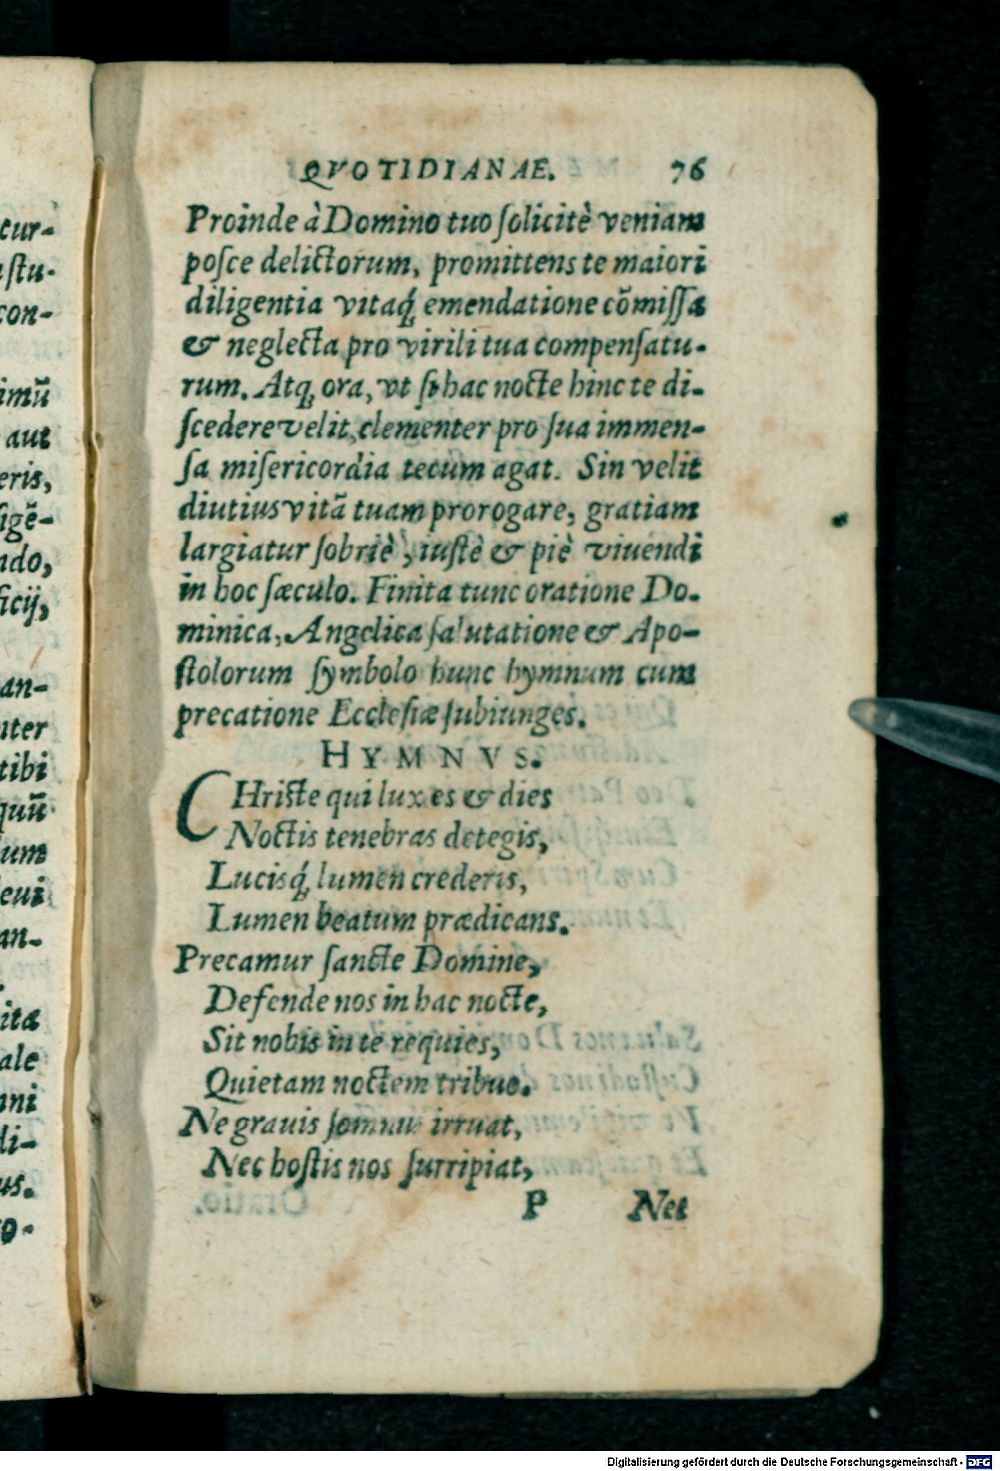 QVOTIDIANAE. 76
Proinde à Domino tuo ſolicitè veniam
poſce delictorum, promittens te maiori
diligentia vitaq́; emendatione cõmiſſa
& neglecta pro virili tua compenſatu-
rum. Atq; ora, vt ſi hac nocte hinc te di-
ſcedere velit, clementer pro ſua immen-
ſa miſericordia tecum agat. Sin velit
diutius vitã tuam prorogare, gratiam
largiatur ſobriè, iuſtè & piè viuendi
in hoc ſæculo. Finita tunc oratione Do-
minica, Angelica ſalutatione & Apo-
ſtolorum ſymbolo hunc hymnum cum
precatione Eccleſiæ ſubiunges.
HYMNVS.
CHriſte qui lux es & dies
Noctis tenebras detegis,
Lucisq́; lumen crederis,
Lumen beatum prædicans.
Precamur ſancte Domine,
Defende nos in hac nocte,
Sit nobis in te requies,
Quietam noctem tribue.
Ne grauis ſomnus irruat,
Nec hoſtis nos ſurripiat,
P Nec
cur-
ſtu-
con-
imũ
aut
eris,
igẽ-
ndo,
ficij,
an-
nter
tibi
quũ
um
leui
an-
itæ
ale
mni
di-
us.
o-
Digitalisierung gefördert durch die Deutsche Forschungsgemeinschaft - DFG